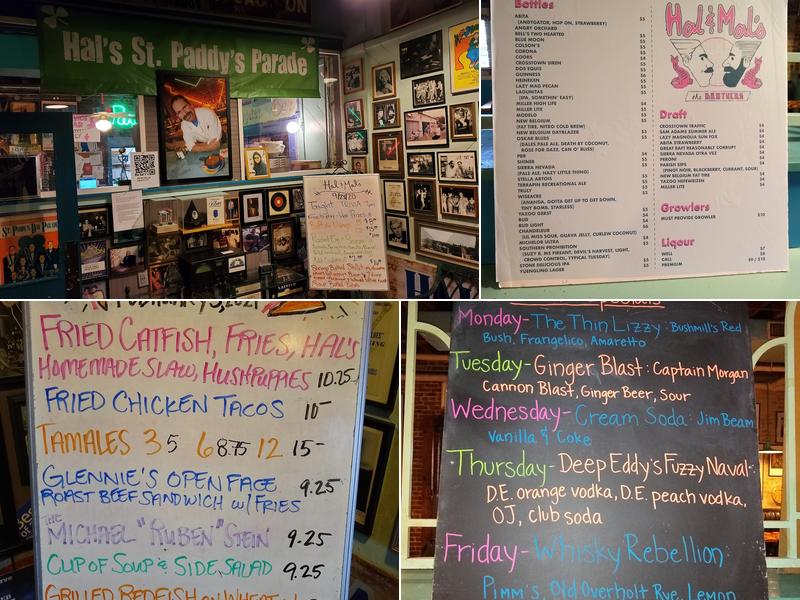 Hal's St. Paddy's Parade
Hal & Mal's
Bottles
ABITA
(ANDYGATOR, HOP ON, STRAWBERRY)
ANGRY ORCHARD
BELL'S TWO HEARTED
BLUE MOON
COLSON'S
CORONA
COORS
CROSSTOWN SIREN
DOS EQUIS
GUINNESS
HEINEKEN
LAZY MAG PECAN
LAGUNITAS
(IPA, SOMETHIN' EASY)
MILLER HIGH LIFE
MILLER LITE
MODELO
NEW BELGIUM
(FAT TIRE, NITRO COLD BREW)
NEW BELGIUM DAYBLAZER
OSKAR BLUES
(DALES PALE ALE, DEATH BY COCONUT,
ROSE FOR DAZE, CAN O' BLISS)
PBR
SHINER
SIERRA NEVADA
(PALE ALE, HAZY LITTLE THING)
STELLA ARTOIS
TERRAPIN RECREATIONAL ALE
TRULY
WISEACRE
(ANANDA, GOTTA GET UP TO GET DOWN,
TINY BOMB, STARLESS)
YAZOO GERST
BUD
BUD LIGHT
CHANDELEUR
(LIL MISS SOUR, GUAVA JELLY, CURLEW COCONUT)
MICHELOB ULTRA
SOUTHERN PROHIBITION
(SUZY B, MS FIREANT, DEVIL'S HARVEST, LIGHT,
CROWD CONTROL, TYPICAL TUESDAY)
STONE DELICIOUS IPA
YUENGLING LAGER
Hal & Mal's
the BROTHERS
Draft
CROSSTOWN TRAFFIC
SAM ADAMS SUMMER ALE
LAZY MAGNOLIA SUN FOX
ABITA STRAWBERRY
GREAT RAFT REASONABLY CORRUPT
SIERRA NEVADA OTRA VEZ
PERONI
PARISH SIPS
(PINOT NOIR, BLACKBERRY, CURRANT, SOUR)
NEW BELGIUM FAT TIRE
YAZOO HEFEWEIZEN
MILLER LITE
Growlers
MUST PROVIDE GROWLER $10
Liqour
WELL $7
CALL $8
PREMIUM $9 / $10
FRIED CATFISH, FRIES, HAL'S
HOMEMADE SLAW, HUSHPUPPIES 10.25
FRIED CHICKEN TACOS 10-
TAMALES 3 5 6 8.75 12 15-
GLENNIE'S OPEN FACE
ROAST BEEF SANDWICH W/ FRIES 9.25
THE MICHAEL "RUBEN" STEIN 9.25
CUP OF SOUP & SIDE SALAD 9.25
GRILLED REDFISH ON WHEAT
Monday-The Thin Lizzy: Bushmill's Red
Bush, Frangelico, Amaretto
Tuesday-Ginger Blast: Captain Morgan
Cannon Blast, Ginger Beer, Sour
Wednesday-Cream Soda: Jim Beam
Vanilla & Coke
Thursday-Deep Eddy's Fuzzy Naval-
D.E. orange vodka, D.E. peach vodka,
OJ, club soda
Friday-Whisky Rebellion
Pimm's, Old Overholt Rye, Lemon